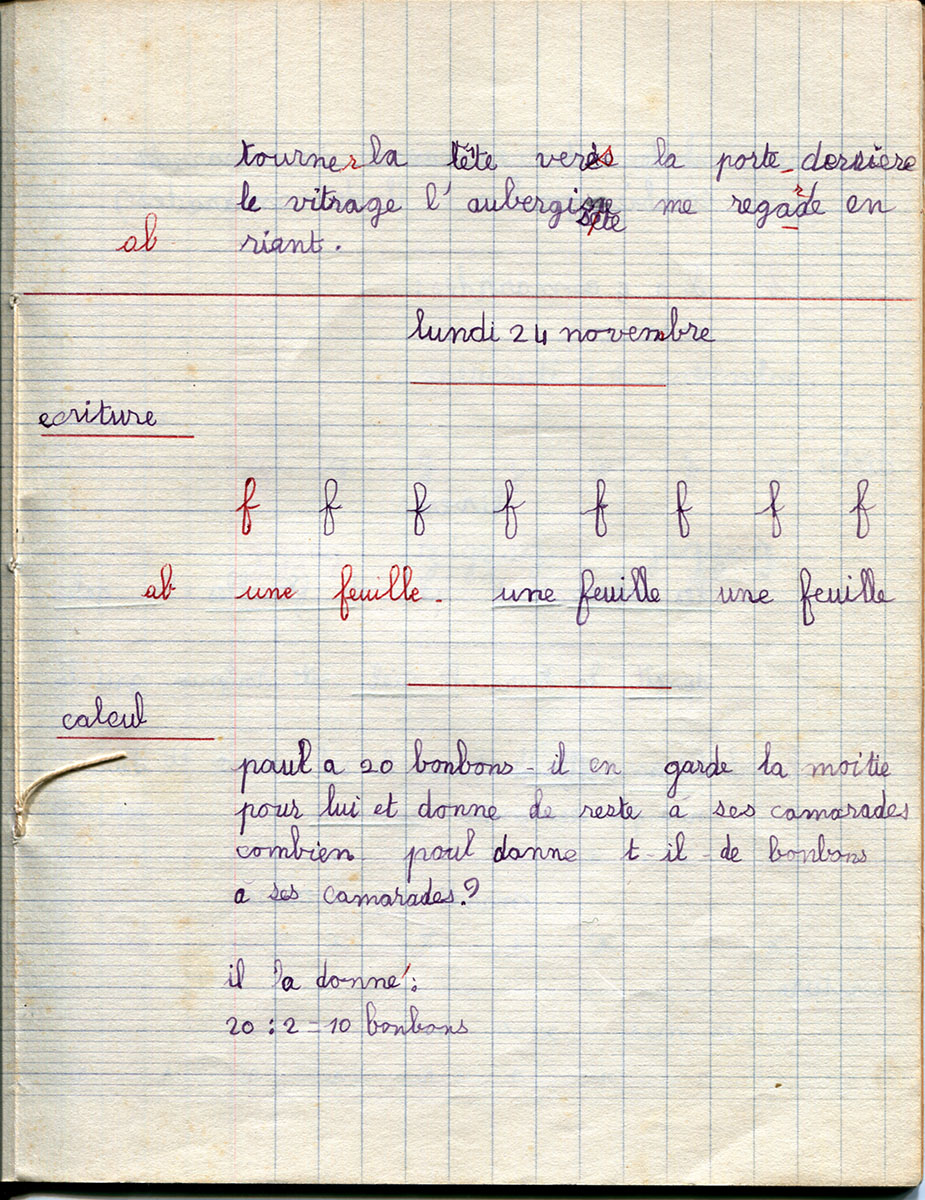 tourner la tête vers la porte_ derrière
le vitrage l'aubergiste me regarde en
ab riant.
lundi 24 novembre
ecriture
f f f f f f f f
ab une feuille. une feuille une feuille
calcul
paul a 20 bonbons - il en garde la moitie
pour lui et donne de reste à ses camarades
combien paul danne t-il-de bonbons
a ses camarades.?
il a donné:
20 : 2 = 10 bonbons